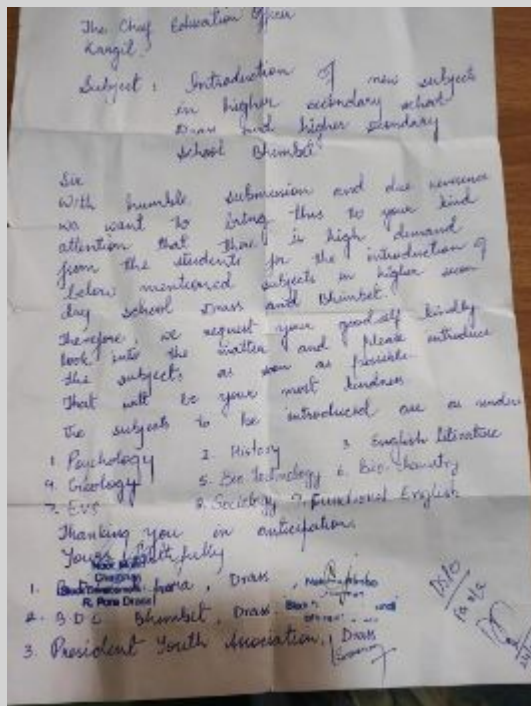 The Chief Education Officer
Kargil.
Subject : Introduction of new subjects
in higher secondary school
Drass and higher secondary
school Bhimbet
Sir
With humble submission and due reverence
we want to bring this to your kind
attention that there is high demand
from the students for the introduction of
below mentioned subjects in higher secon
day school Drass and Bhimbet.
Therefore, we request your goodself kindly
look into the matter and please introduce
the subjects as soon as possible
That will be your most kindness
The subjects to be introduced are as under
1 Psychology 2 History 3 English literature
4. Geology 5. Bio. Technology 6. Bio. Chemistry
7. EVS 8. Sociology 9. Functional English
Thanking you in anticipation
Yours faithfully
Chairman
Block Development
R. Pora Drass
1. Pora, Drass
2. B.D.C Bhimbet, Drass.
3. President Youth Association, Drass